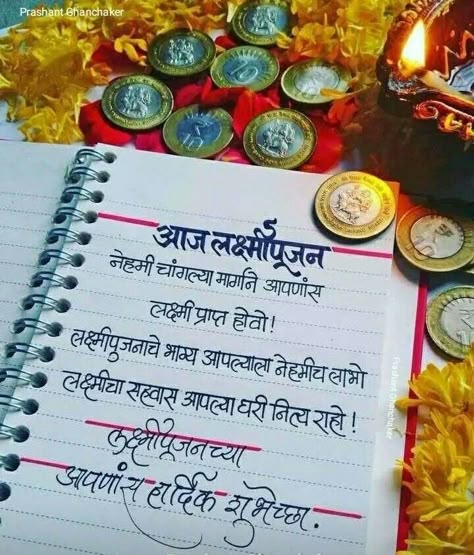 Prashant Ghanchaker
आज लक्ष्मीपूजन
नेहमी चांगल्या मार्गाने आपणांस
लक्ष्मी प्राप्त होवो!
लक्ष्मीपुजनाचे भाग्य आपल्याला नेहमीच लाभो
लक्ष्मीचा सहवास आपल्या घरी नित्य राहो!
लक्ष्मीपूजनच्या
आपणांस हार्दिक शुभेच्छा.
Prashant Ghanchaker